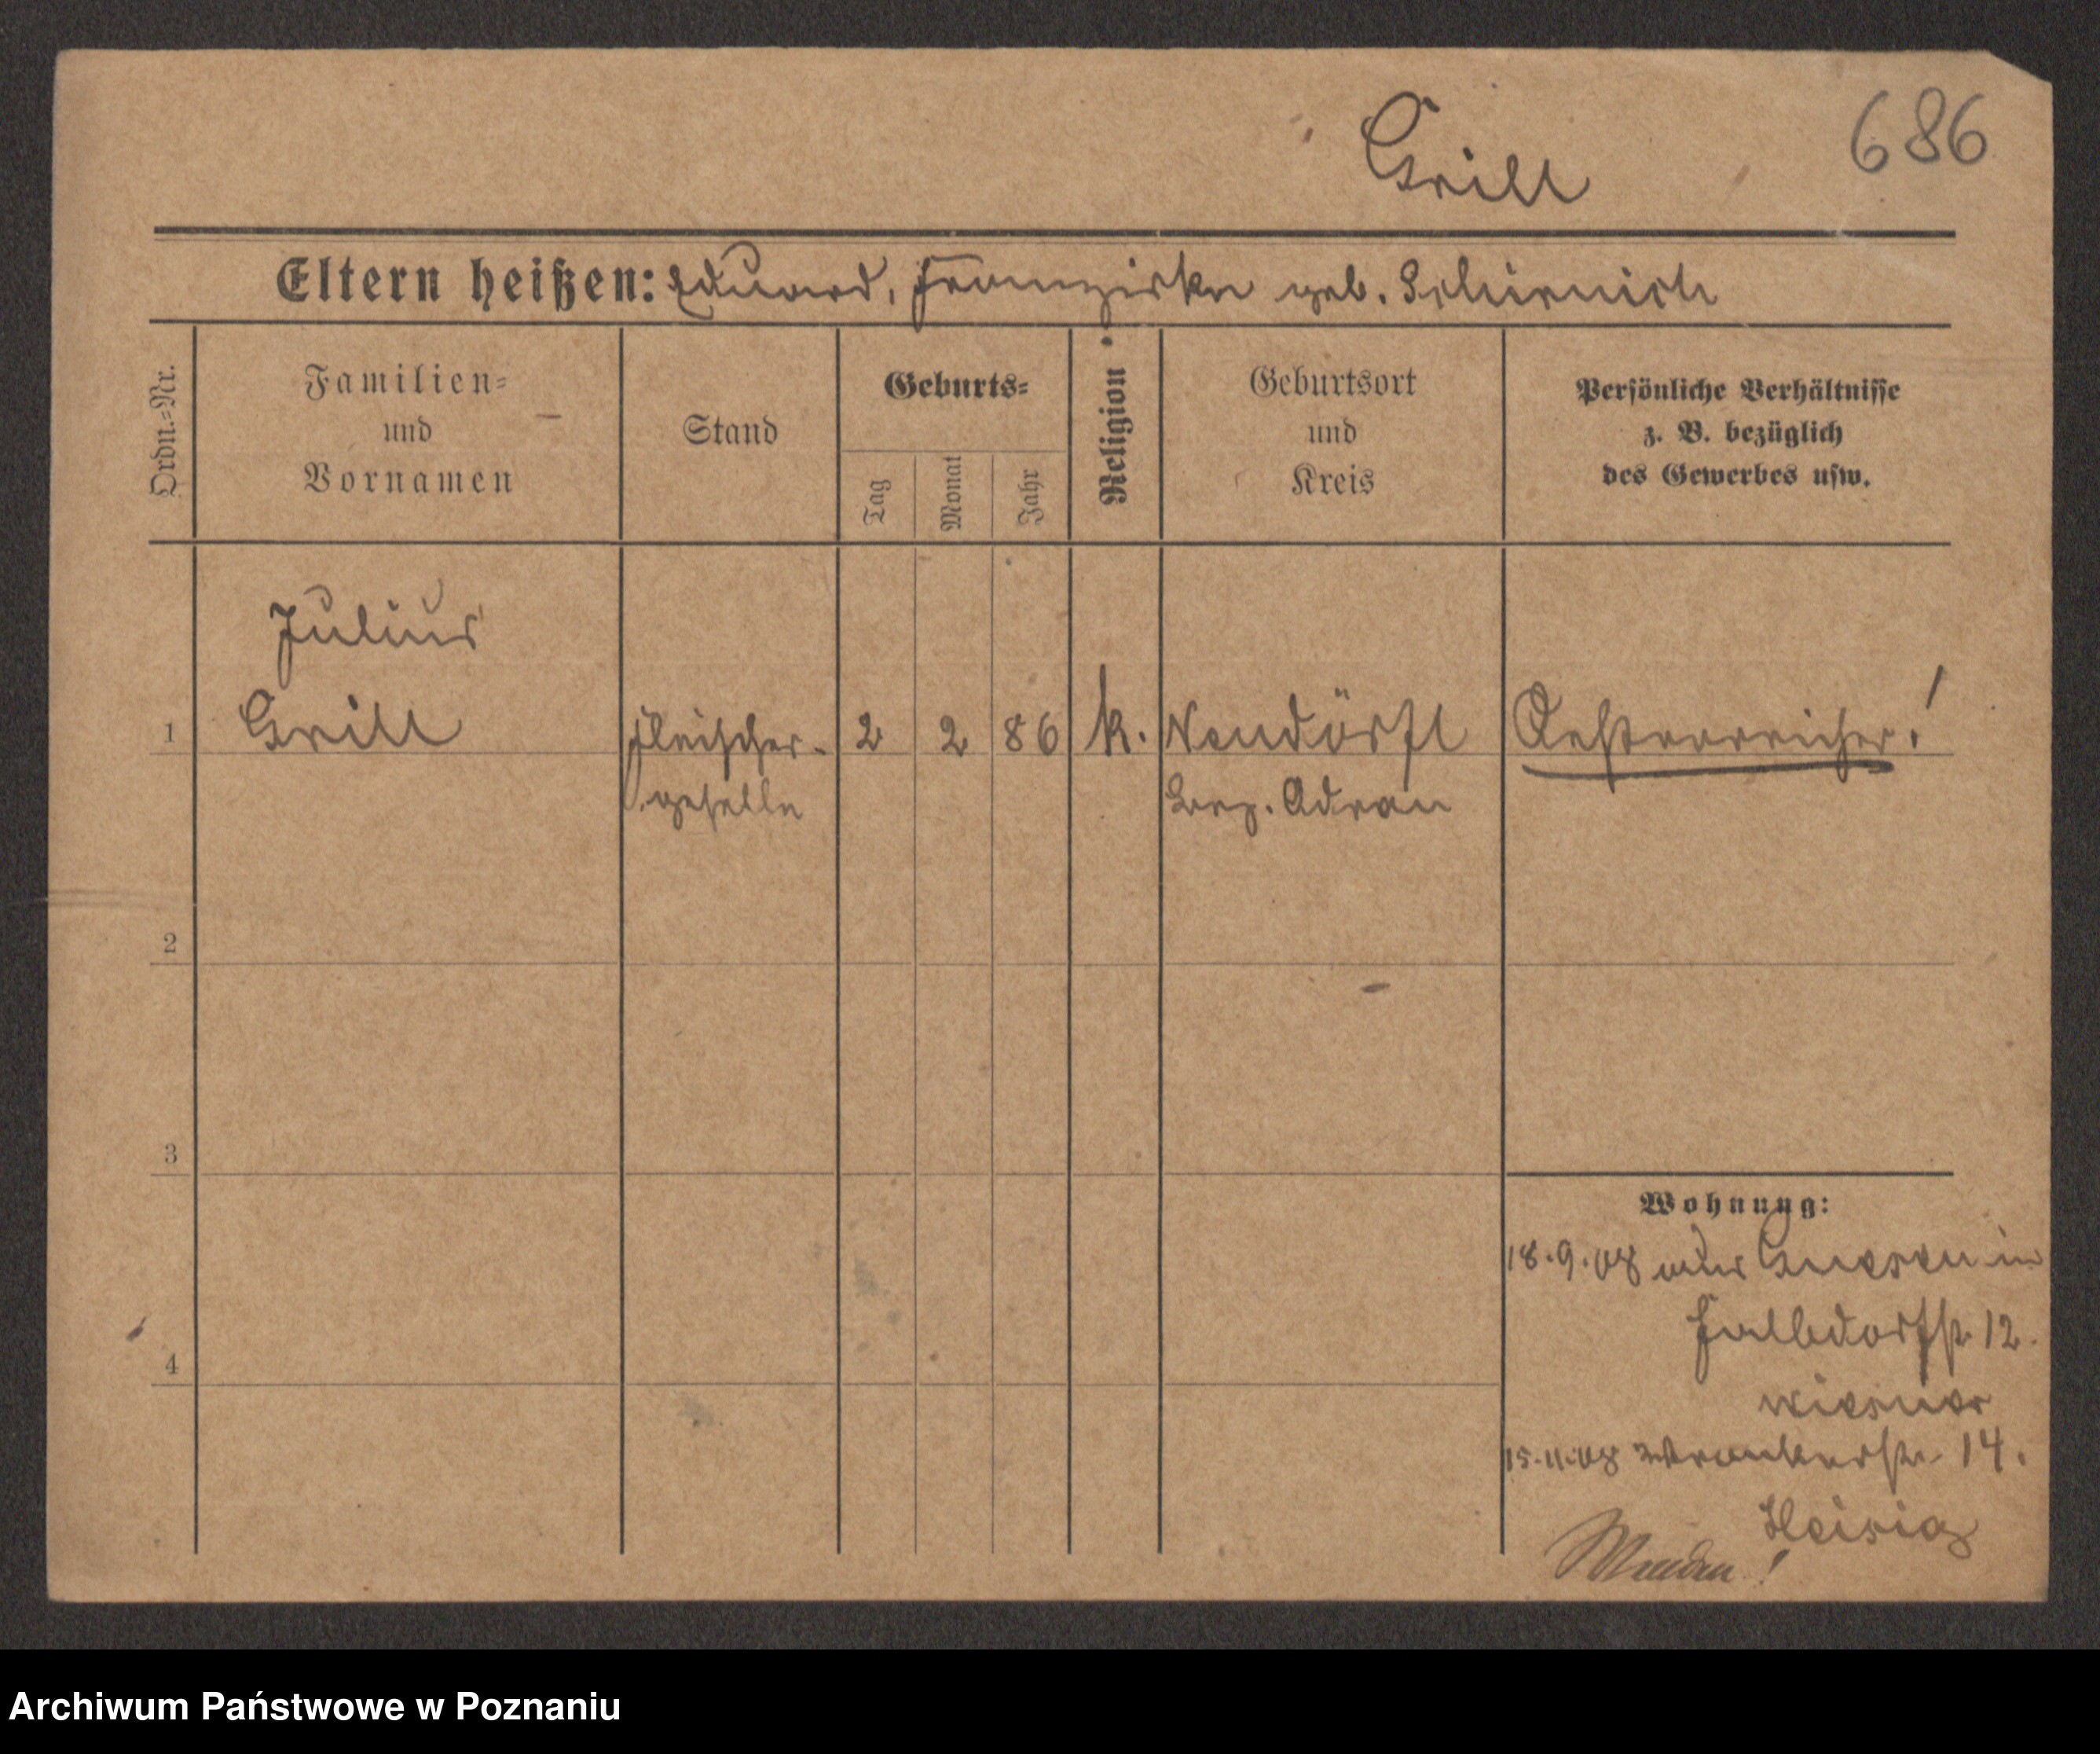 Grill
686
Eltern heißen: Eduard, Franziska geb. Schirnich
Ordn.-Nr.
Familien-
und
Vornamen
Stand
Geburts-
Tag
Monat
Jahr
Religion
Geburtsort
und
Kreis
Persönliche Verhältnisse
z. B. bezüglich
des Gewerbes usw.
Julius
1 Grill Fleischer- 2 2 86 k. Neudörfl Oesterreicher!
geselle Bez. Adran
2
3
4
Wohnung:
18.9.08 aus Gnesen in
Halbdorfstr. 12.
Wiesner
15.11.08 Wronkerstr. 14.
Heisig
Wenden!
Archiwum Państwowe w Poznaniu